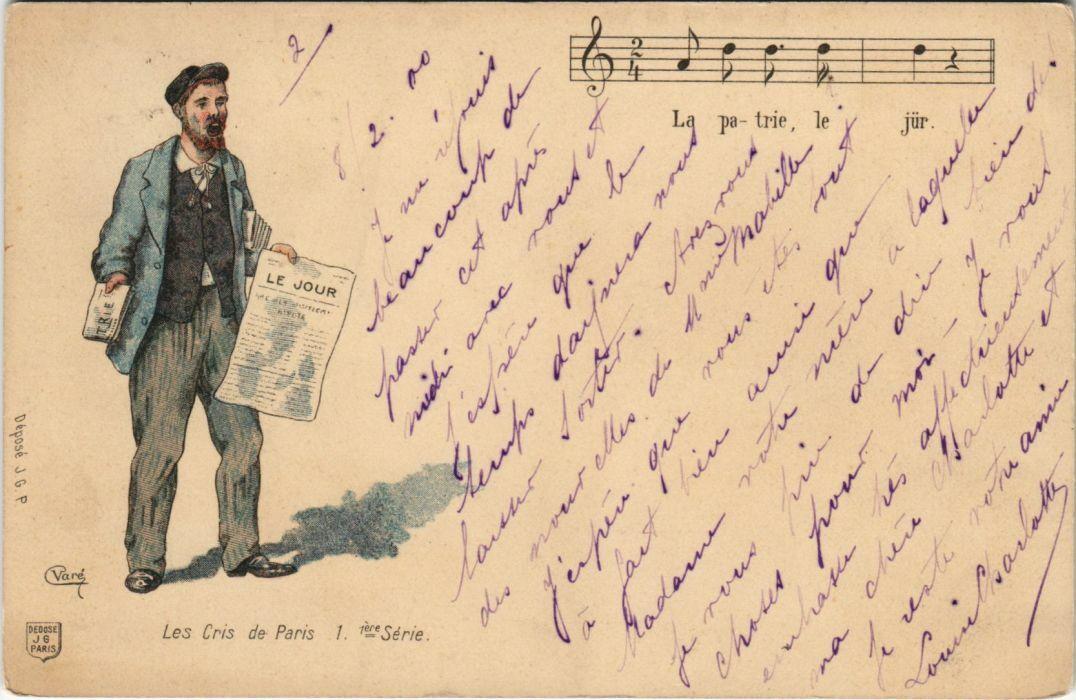 2
4
La pa-trie, le jür.
LE JOUR
TRIE
Déposé J. G. P
C Varé
DEPOSE
J G
PARIS
Les Cris de Paris 1. 1ère Série.
2/
8/2.00
Je me réjouis
beaucoup de
passer cet après
midi avec vous et
j'espère que le
temps daignera nous
laisser sortir. Avez vous
des nouvelles de Mme Mabille?
J'espère que vous êtes tout
à fait bien ainsi que
Madame votre mère à laquelle
je vous prie de dire bien des
choses pour moi. Je vous
embrasse très affectueusement
ma chère Charlotte et
je reste votre amie
Charlotte